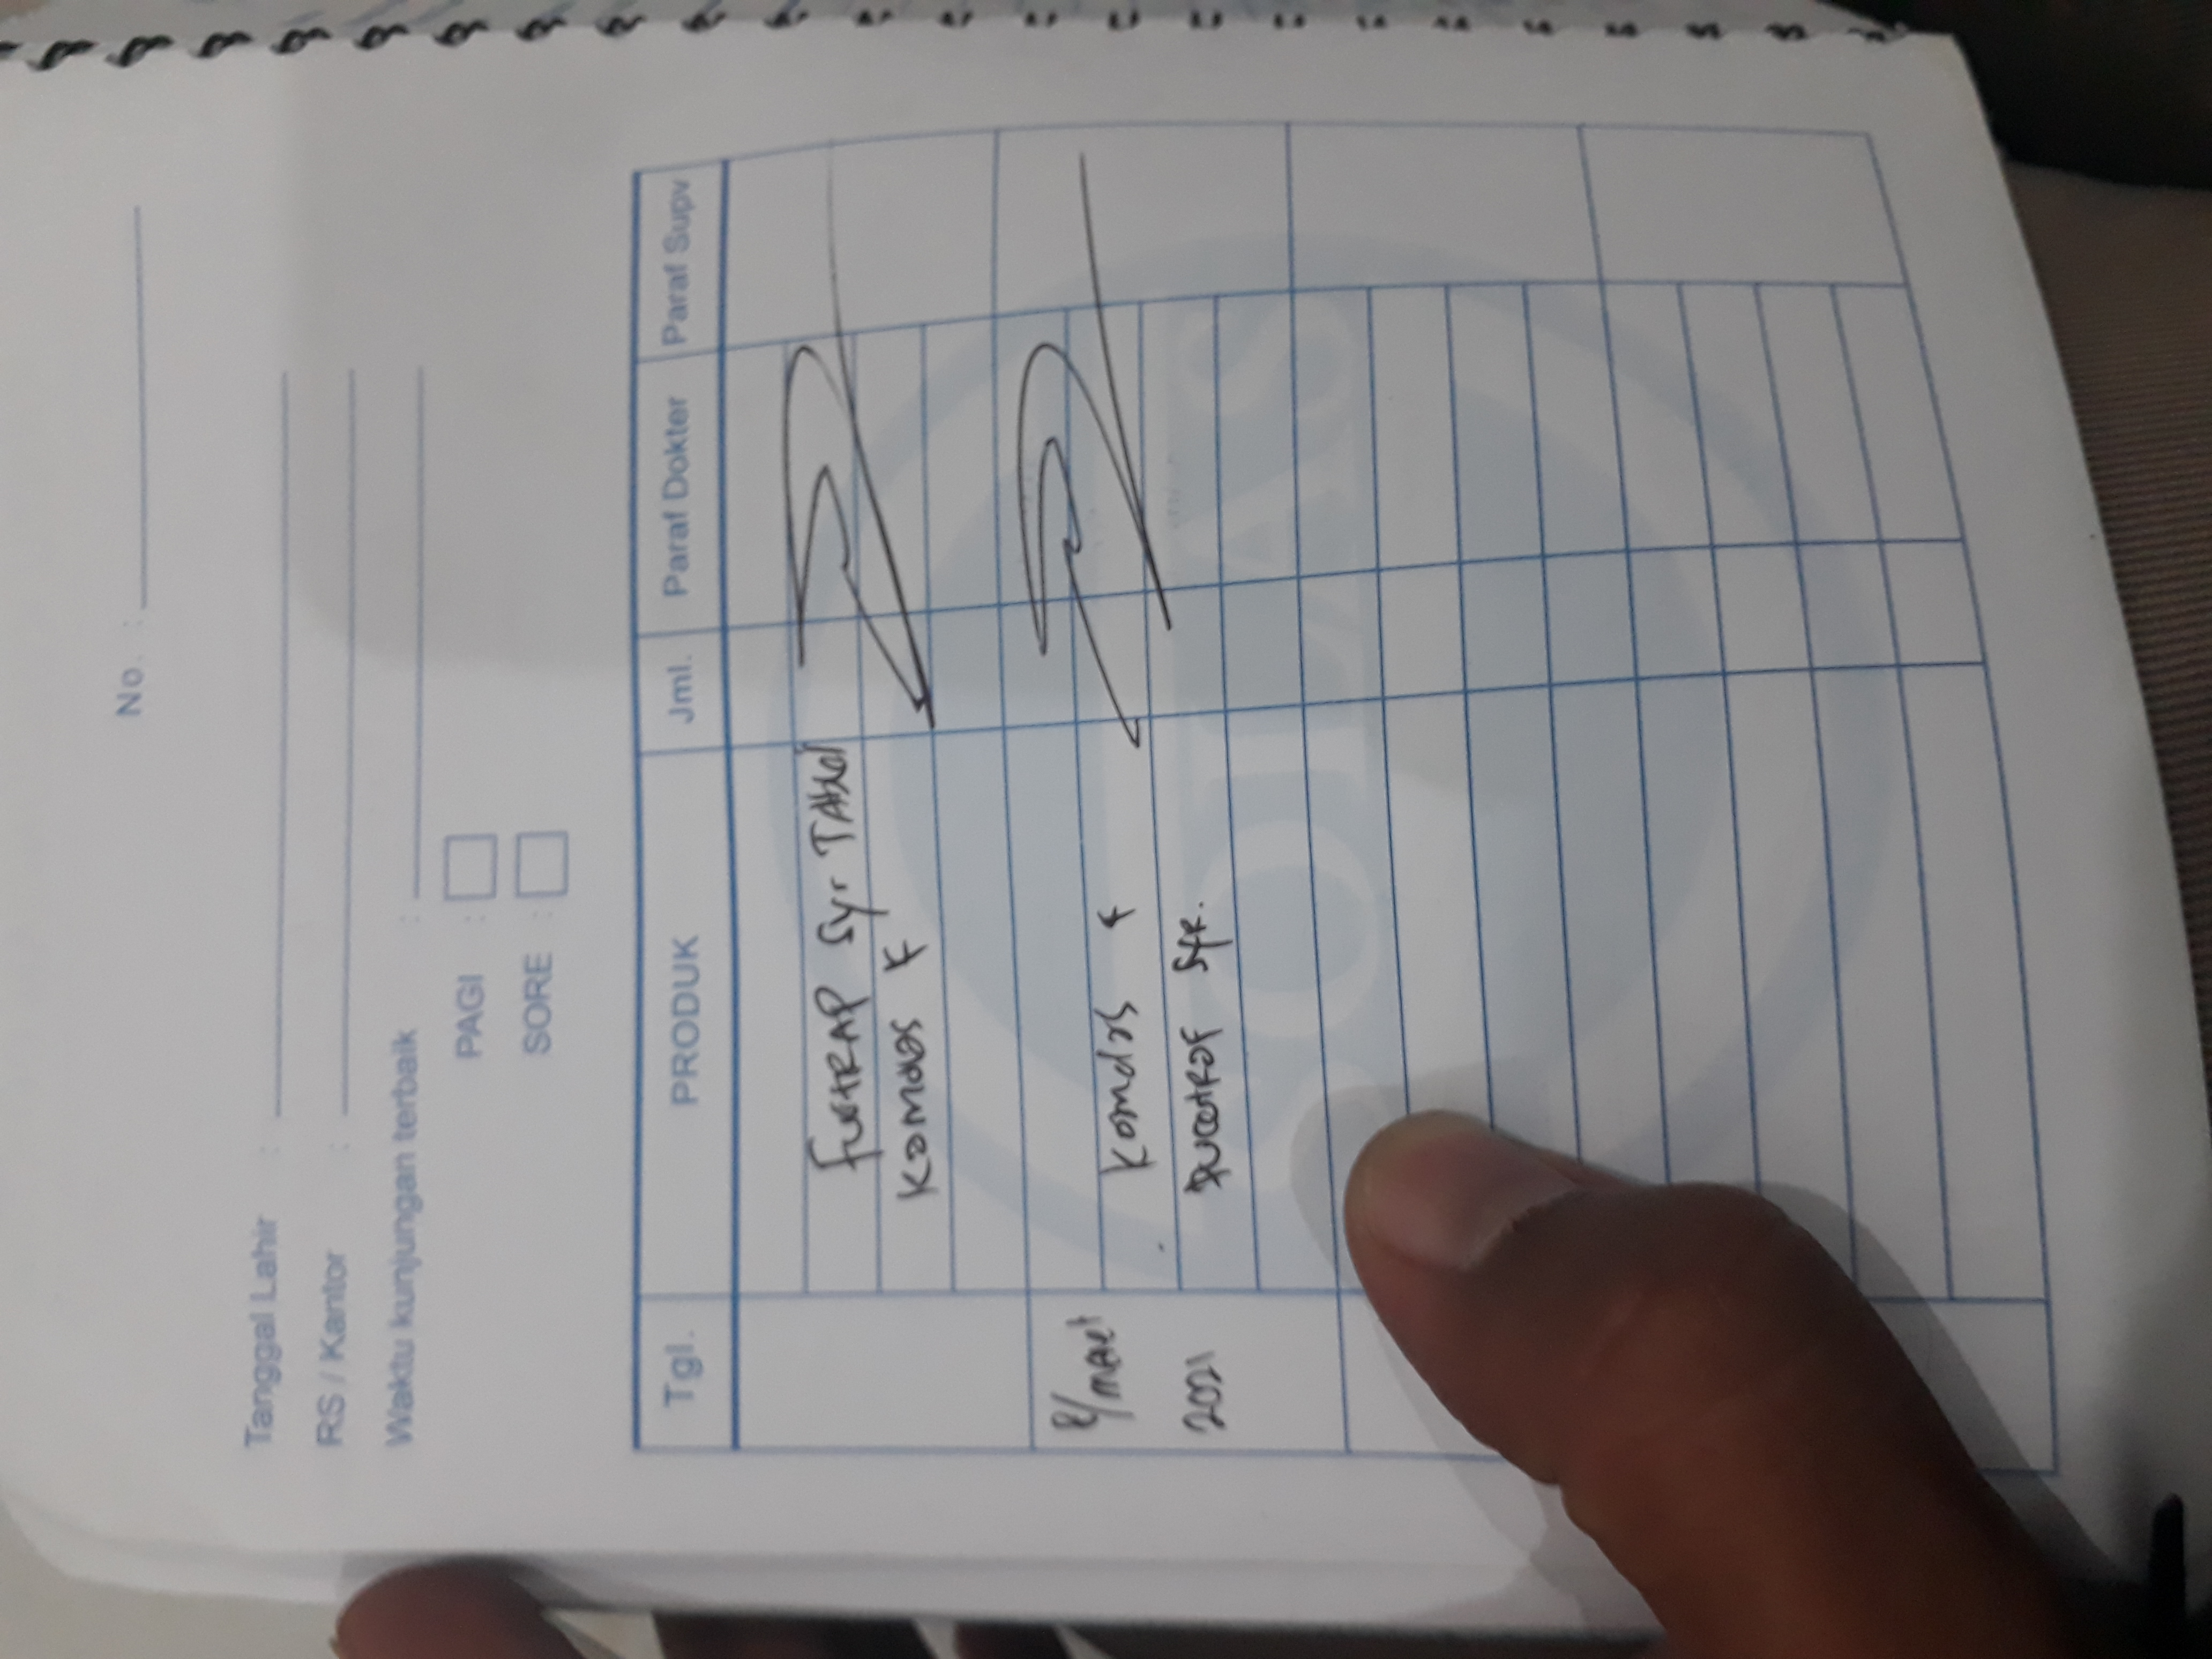 No. :
Tanggal Lahir :
RS / Kantor :
Waktu kunjungan terbaik :
PAGI :
SORE :
Tgl. PRODUK Jml. Paraf Dokter Paraf Supv
Syr TAblet
Komdos F
8/maret Komdos F
2021 Syr.
SOLAS